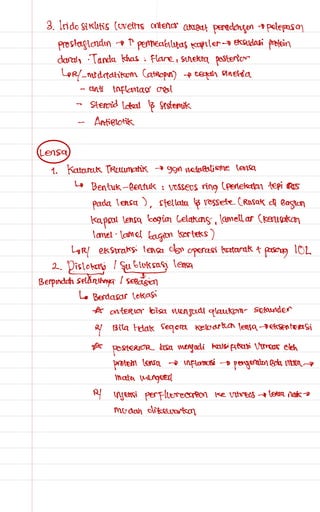 3. Iridosiklitis (uveitis anterior akibat peradangan → pelepasan
prostaglandin → ↑ permeabilitas kapiler → eksudasi protein
darah. Tanda khas: Flare, sinekia posterior
↳ R/ midriatikum (atropin) → cegah sinekia
- anti inflamasi oral
- Steroid lokal & sistemik
- Antibiotik
Lensa
1. Katarak Traumatik → ggn metabolisme lensa
↳ Bentuk-Bentuk : vossecs ring (penekatan tepi
pada lensa), stellata & rossete (Rusak di Bagian
kapsul lensa bagian belakang, lamellar (kerusakan
lamel-lamel bagian korteks)
↳ R/ ekstraksi lensa dgn operasi katarak + pasang IOL
2. Dislokasi / Subluksasi lensa
Berpindah seluruhnya / sebagian
↳ Berdasar lokasi
☆ anterior bisa menjadi glaukoma sekunder
R/ Bila tidak segera keluarkan lensa →
☆ posterior bisa menjadi vitreus oleh
protein lensa → inflamasi → pengecilan Bola mata →
mata mengecil
R/ injeksi perfluorocarbon ke vitreus → lensa naik →
mudah dikeluarkan